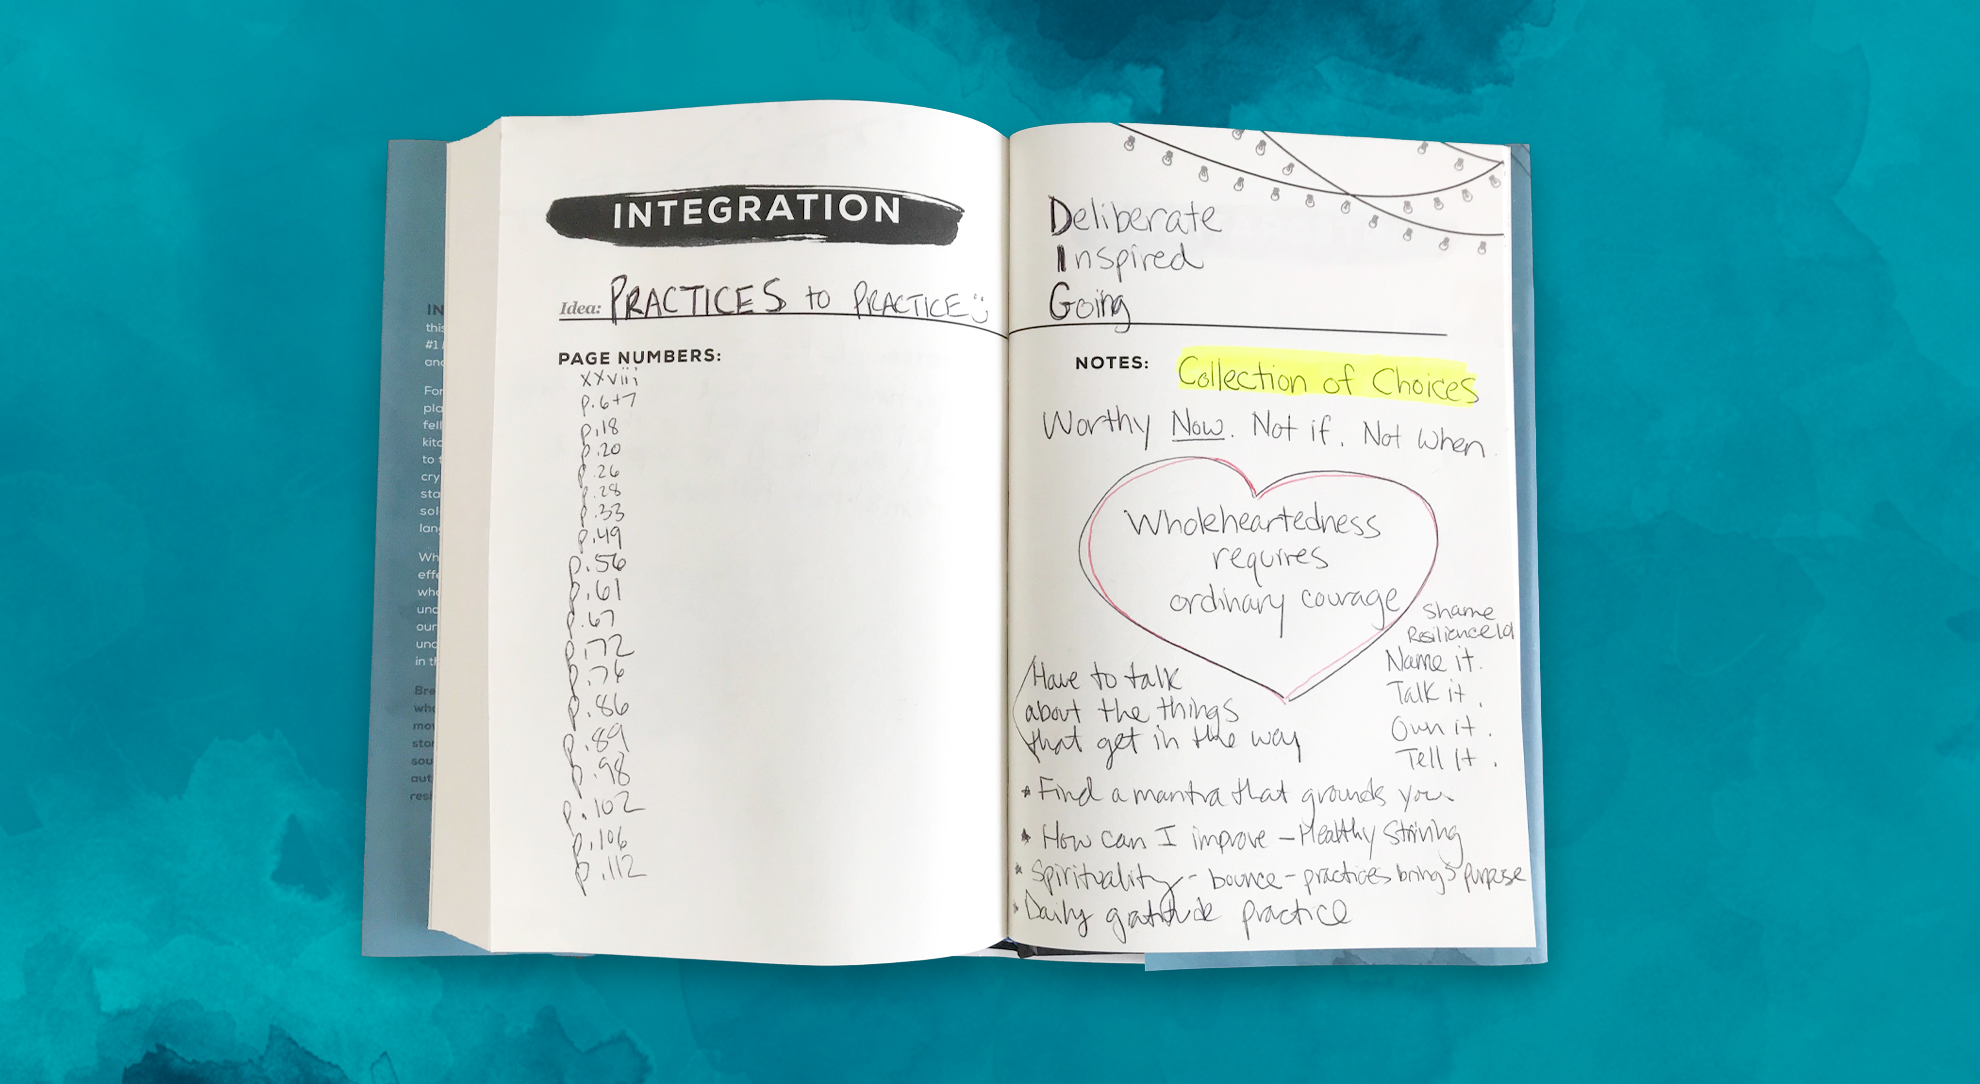 IN
this
#1
and
For
pla
fell
kitc
to t
cry
sta
sol
lan
Wh
effe
who
unc
our
unc
in th
Bre
who
mov
stor
sou
aut
resi
INTEGRATION
Idea: PRACTICES to PRACTICE
PAGE NUMBERS:
xxviii
p.6+7
p.18
p.20
p.26
p.28
p.33
p.49
p.56
p.61
p.67
p.72
p.76
p.86
p.89
p.98
p.102
p.106
p.112
Deliberate
Inspired
Going
NOTES: Collection of Choices
Worthy Now. Not if. Not when.
Wholeheartedness
requires
ordinary courage
Shame
Resilience 101
Name it.
Talk it.
Own it.
Tell It.
Have to talk
about the things
that get in the way
* Find a mantra that grounds you
* How can I improve - Healthy Striving
* Spirituality - bounce - practices brings purpose
* Daily gratitude practice